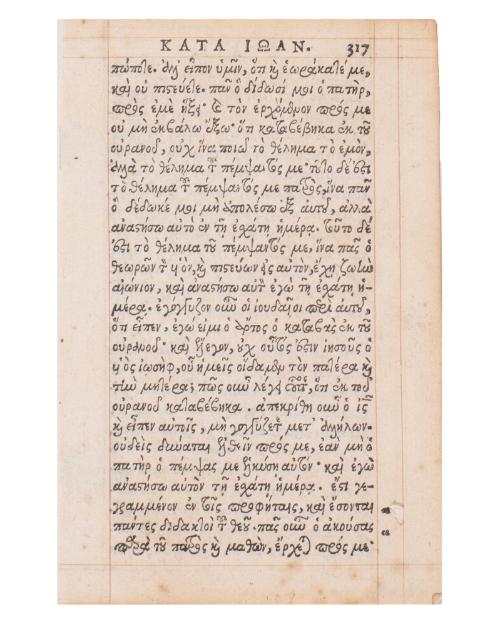 ΚΑΤΑ ΙΩΑΝ. 317
πώποτε. ἀλλ' εἶπον ὑμῖν, ὅτι καὶ ἑωράκατέ με,
καὶ οὐ πιστεύετε. πᾶν ὃ δίδωσί μοι ὁ πατὴρ,
πρὸς ἐμὲ ἥξει· καὶ τὸν ἐρχόμενον πρός με
οὐ μὴ ἐκβάλω ἔξω· ὅτι καταβέβηκα ἐκ τοῦ
οὐρανοῦ, οὐχ ἵνα ποιῶ τὸ θέλημα τὸ ἐμὸν,
ἀλλὰ τὸ θέλημα τοῦ πέμψαντός με· τοῦτο δέ ἐστι
τὸ θέλημα τοῦ πέμψαντός με πατρὸς, ἵνα πᾶν
ὃ δέδωκέ μοι μὴ ἀπολέσω ἐξ αὐτοῦ, ἀλλὰ
ἀναστήσω αὐτὸ ἐν τῇ ἐσχάτῃ ἡμέρᾳ. τοῦτο δέ
ἐστι τὸ θέλημα τοῦ πέμψαντός με, ἵνα πᾶς ὁ
θεωρῶν τὸν υἱὸν, καὶ πιστεύων εἰς αὐτὸν, ἔχῃ ζωὴν
αἰώνιον, καὶ ἀναστήσω αὐτὸν ἐγὼ τῇ ἐσχάτῃ ἡ-
μέρᾳ. ἐγόγγυζον οὖν οἱ ἰουδαῖοι περὶ αὐτοῦ,
ὅτι εἶπεν, ἐγώ εἰμι ὁ ἄρτος ὁ καταβὰς ἐκ τοῦ
οὐρανοῦ· καὶ ἔλεγον, οὐχ οὗτός ἐστιν ἰησοῦς ὁ
υἱὸς ἰωσὴφ, οὗ ἡμεῖς οἴδαμεν τὸν πατέρα καὶ
τὴν μητέρα; πῶς οὖν λέγει οὗτος, ὅτι ἐκ τοῦ
οὐρανοῦ καταβέβηκα. ἀπεκρίθη οὖν ὁ ἰς
καὶ εἶπεν αὐτοῖς, μὴ γογγύζετε μετ' ἀλλήλων·
οὐδεὶς δύναται ἐλθεῖν πρός με, ἐὰν μὴ ὁ
πατὴρ ὁ πέμψας με ἑλκύσῃ αὐτόν· καὶ ἐγὼ
ἀναστήσω αὐτὸν τῇ ἐσχάτῃ ἡμέρᾳ. ἔστι γε-
γραμμένον ἐν τοῖς προφήταις, καὶ ἔσονται
πάντες διδακτοὶ τοῦ θεοῦ· πᾶς οὖν ὁ ἀκούσας
παρὰ τοῦ πατρὸς καὶ μαθὼν, ἔρχεται πρός με·